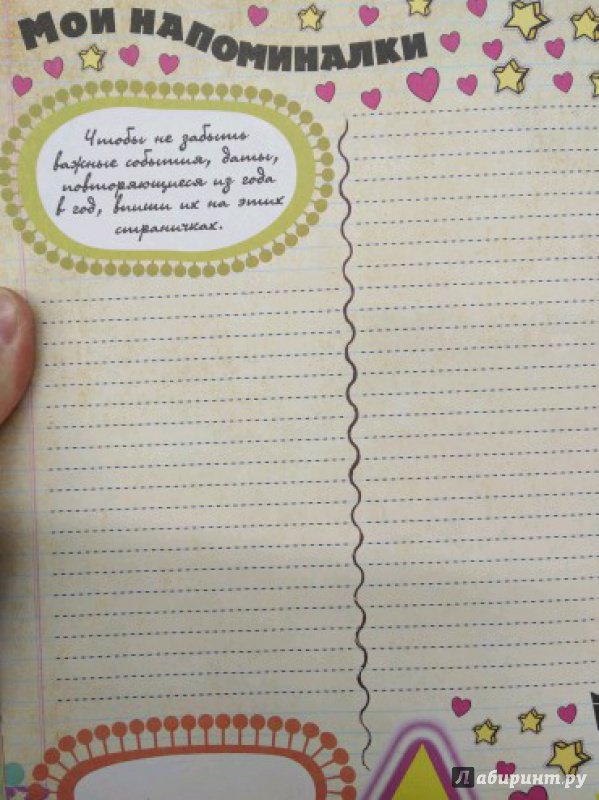 Мои напоминалки
Чтобы не забыть
важные события, даты,
повторяющиеся из года
в год, впиши их на этих
страничках.
Лабиринт.ру